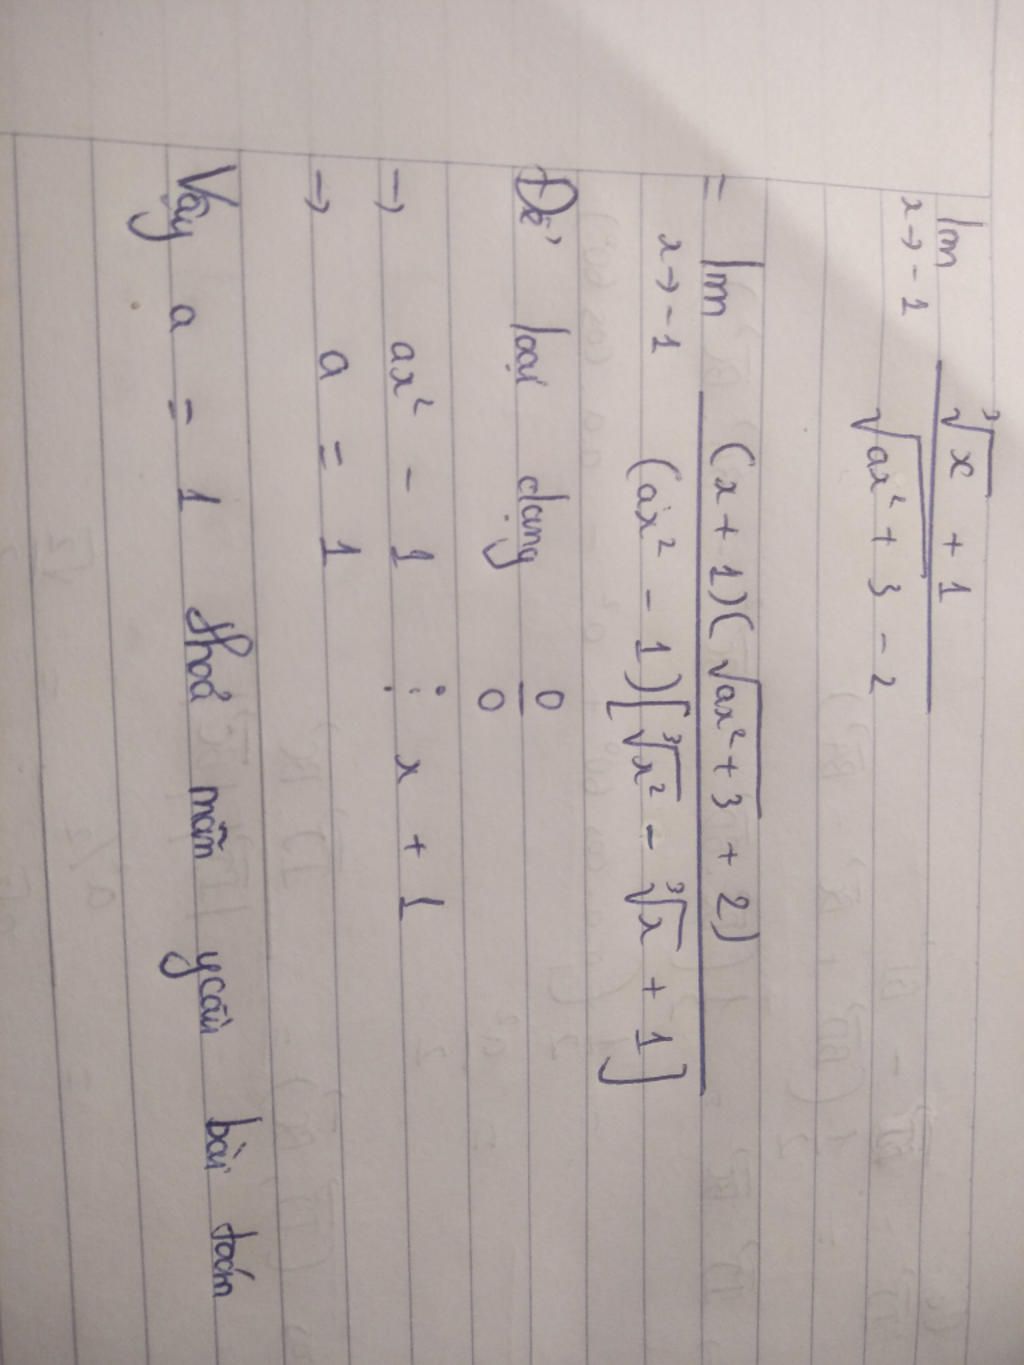 lim x→-1 (∛x + 1)/(√(ax² + 3) - 2)
= lim x→-1 (x + 1)(√(ax² + 3) + 2)/((ax² - 1)[∛x² - ∛x + 1])
Để loại dạng 0/0
→ ax² - 1 ⋮ x + 1
→ a = 1
Vậy a = 1 thoả mãn ycầu bài toán